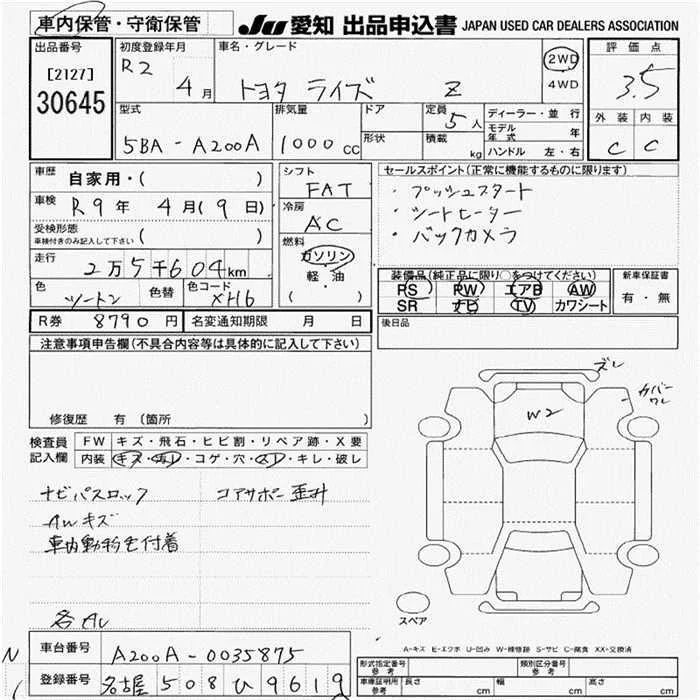 車内保管・守衛保管
JU 愛知 出品申込書 JAPAN USED CAR DEALERS ASSOCIATION
出品番号
[2127]
30645
初度登録年月
R2
4月
車名・グレード
トヨタ ライズ Z
2WD
4WD
評価点
3.5
外装 内装
C C
型式
5BA-A200A
排気量
1000 CC
ドア
形状
定員
5人
積載
kg
ディーラー・並行
モデル年式 年
ハンドル 左・右
車歴
自家用・( )
車検
R9年 4月(9日)
受検形態
車検付きのみ記入して下さい ( )
走行
2万5千604km
色
ツートン
色替
色コード
XH6
シフト
FAT
冷房
AC
燃料
ガソリン
軽・油
( )
セールスポイント(正常に機能するものに限ります)
・プッシュスタート
・シートヒーター
・バックカメラ
装備品(純正品に限り○をつけてください)
PS PW エアB AW
SR ナビ TV カワシート
新車保証書
有・無
R券 8790円
名変通知期限 月 日
後日品
注意事項申告欄(不具合内容等は具体的に記入して下さい)
修復歴 有 (箇所 )
検査員記入欄
FW キズ・飛石・ヒビ割・リペア跡・X要
内装 キズ・汚レ・コゲ・穴・スレ・キレ・破レ
ナビパスロック
コアサポー歪み
AWキズ
車内動物毛付着
各AL
ズレ
カバーワレ
W2
スペア
A-キズ E-エクボ U-凹み W-補修跡 S-サビ C-腐食 XX-交換済
車台番号
A200A-0035875
登録番号
名古屋 508 ひ 9619
形式指定番号
参考
類別区分番号
参考
車庫証明用
参考
長さ cm
幅 cm
高さ cm